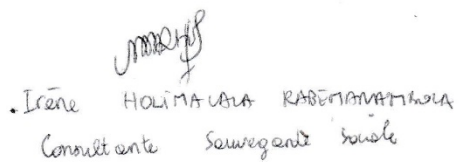 . Irène HOLIMALALA RABEMANAMBOLA
Consultante Sauvegarde Sociale